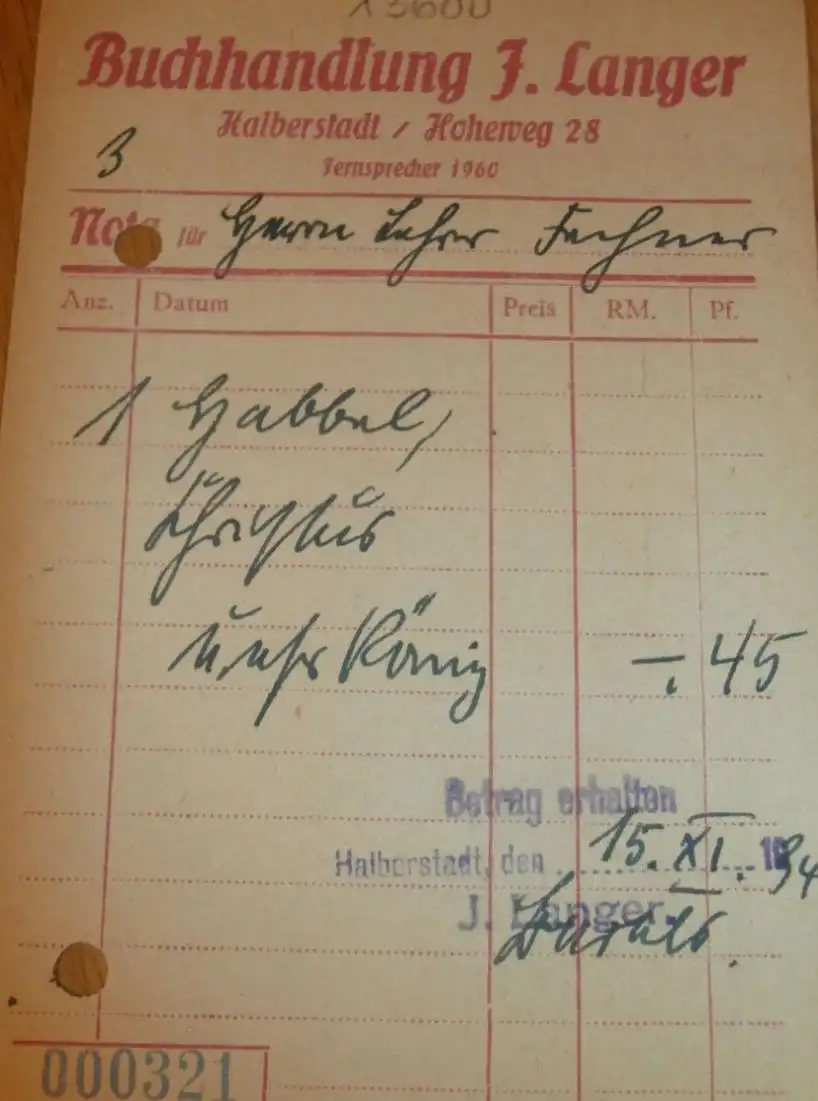 Buchhandlung J. Langer
Halberstadt / Hoheweg 28
3
Fernsprecher 1960
Nota für Herrn Lehrer Fechner
Anz. Datum Preis RM. Pf.
1 Habbel,
Christus
unser König —. 45
Betrag erhalten
Halberstadt, den 15. XI. 1934
J. Langer.
000321